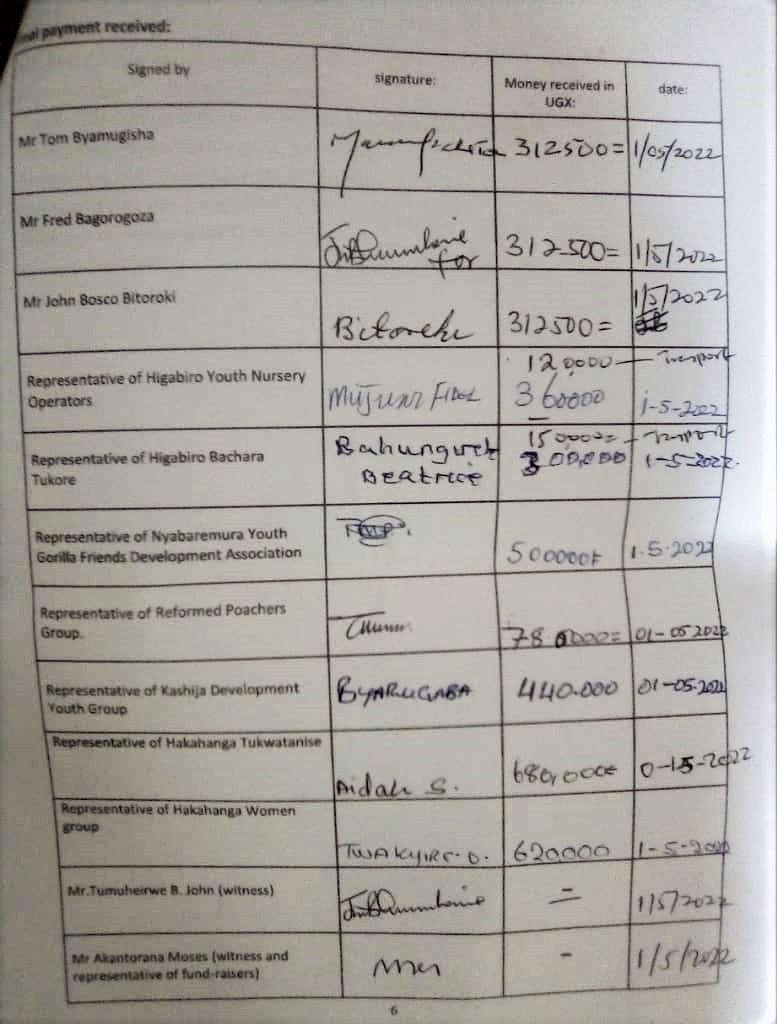 payment received:
Signed by signature: Money received in date:
UGX:
Mr Tom Byamugisha 312500= 1/05/2022
Mr Fred Bagorogoza 312500= 1/5/2022
for
Mr John Bosco Bitoroki 1/5/2022
Bitoreki 312500=
120,000 — Transport
Representative of Higabiro Youth Nursery
Operators Mujuni Fidel 360000 1-5-2022
150,000= — Transport
Representative of Higabiro Bachara Bahungirehe 300,000 1-5-2022.
Tukore Beatrice
Representative of Nyabaremura Youth
Gorilla Friends Development Association 500000= 1.5.2022
Representative of Reformed Poachers
Group. 780000= 01-05 2022
Representative of Kashija Development BYARUGABA 440.000 01-05-2022
Youth Group
Representative of Hakahanga Tukwatanise
Aidah S. 680,000= 0-15-2022
Representative of Hakahanga Women
group TWAKYIRE.D. 620000 1-5-2022
Mr.Tumuheirwe B. John (witness) = 1/5/2022
Mr Akantorana Moses (witness and - 1/5/2022
representative of fund-raisers)
6